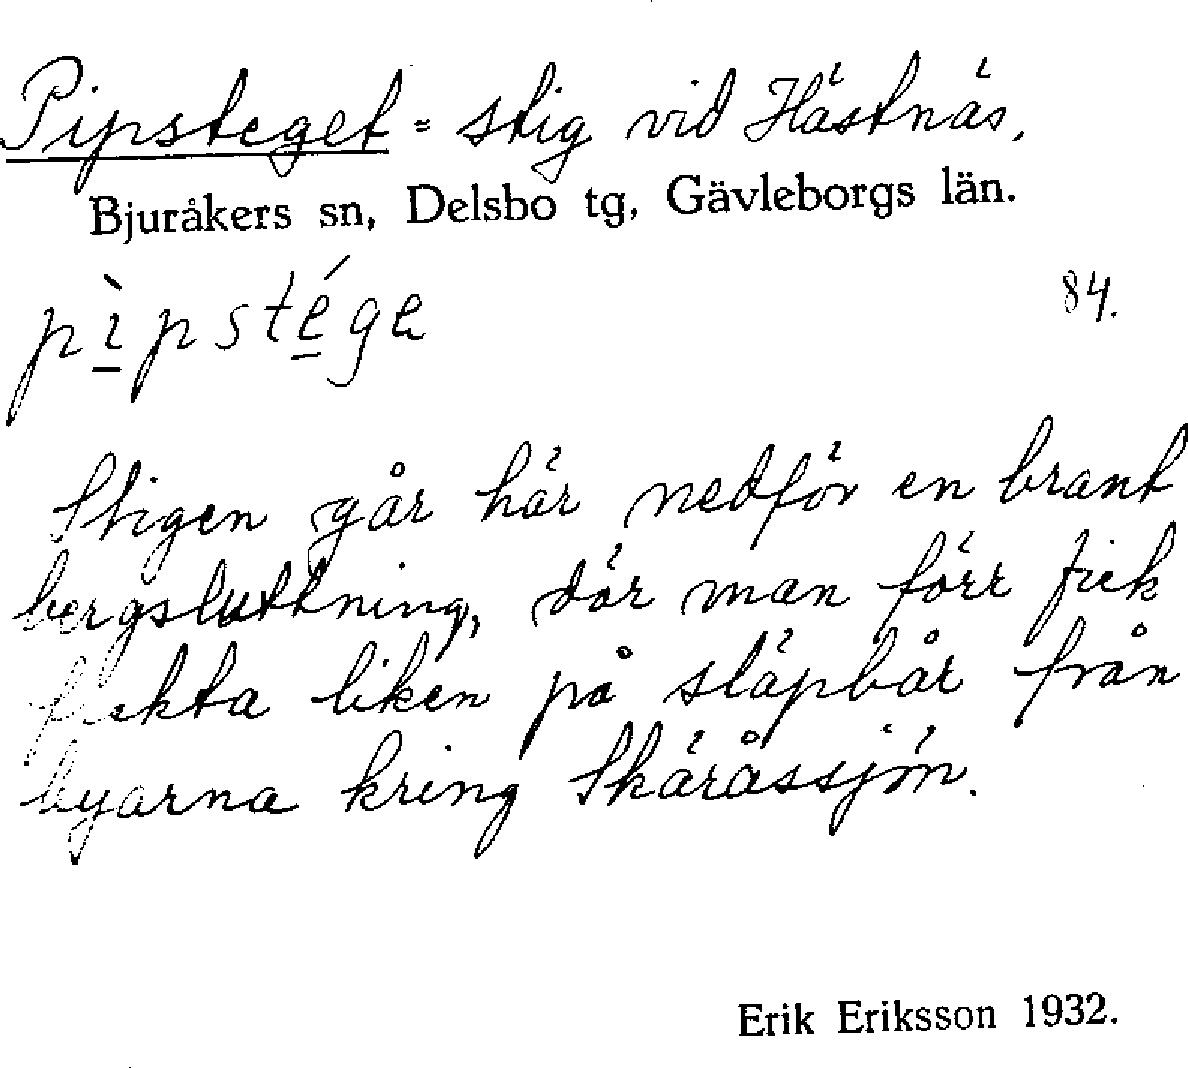 Pipsteget = stig vid Hästnäs,
Bjuråkers sn, Delsbo tg, Gävleborgs län.
pìpstége
84.
Stigen går här nedför en brant
bergsluttning, där man förr fick
frakta liken på släpbår från
byarna kring Skäråssjön.
Erik Eriksson 1932.